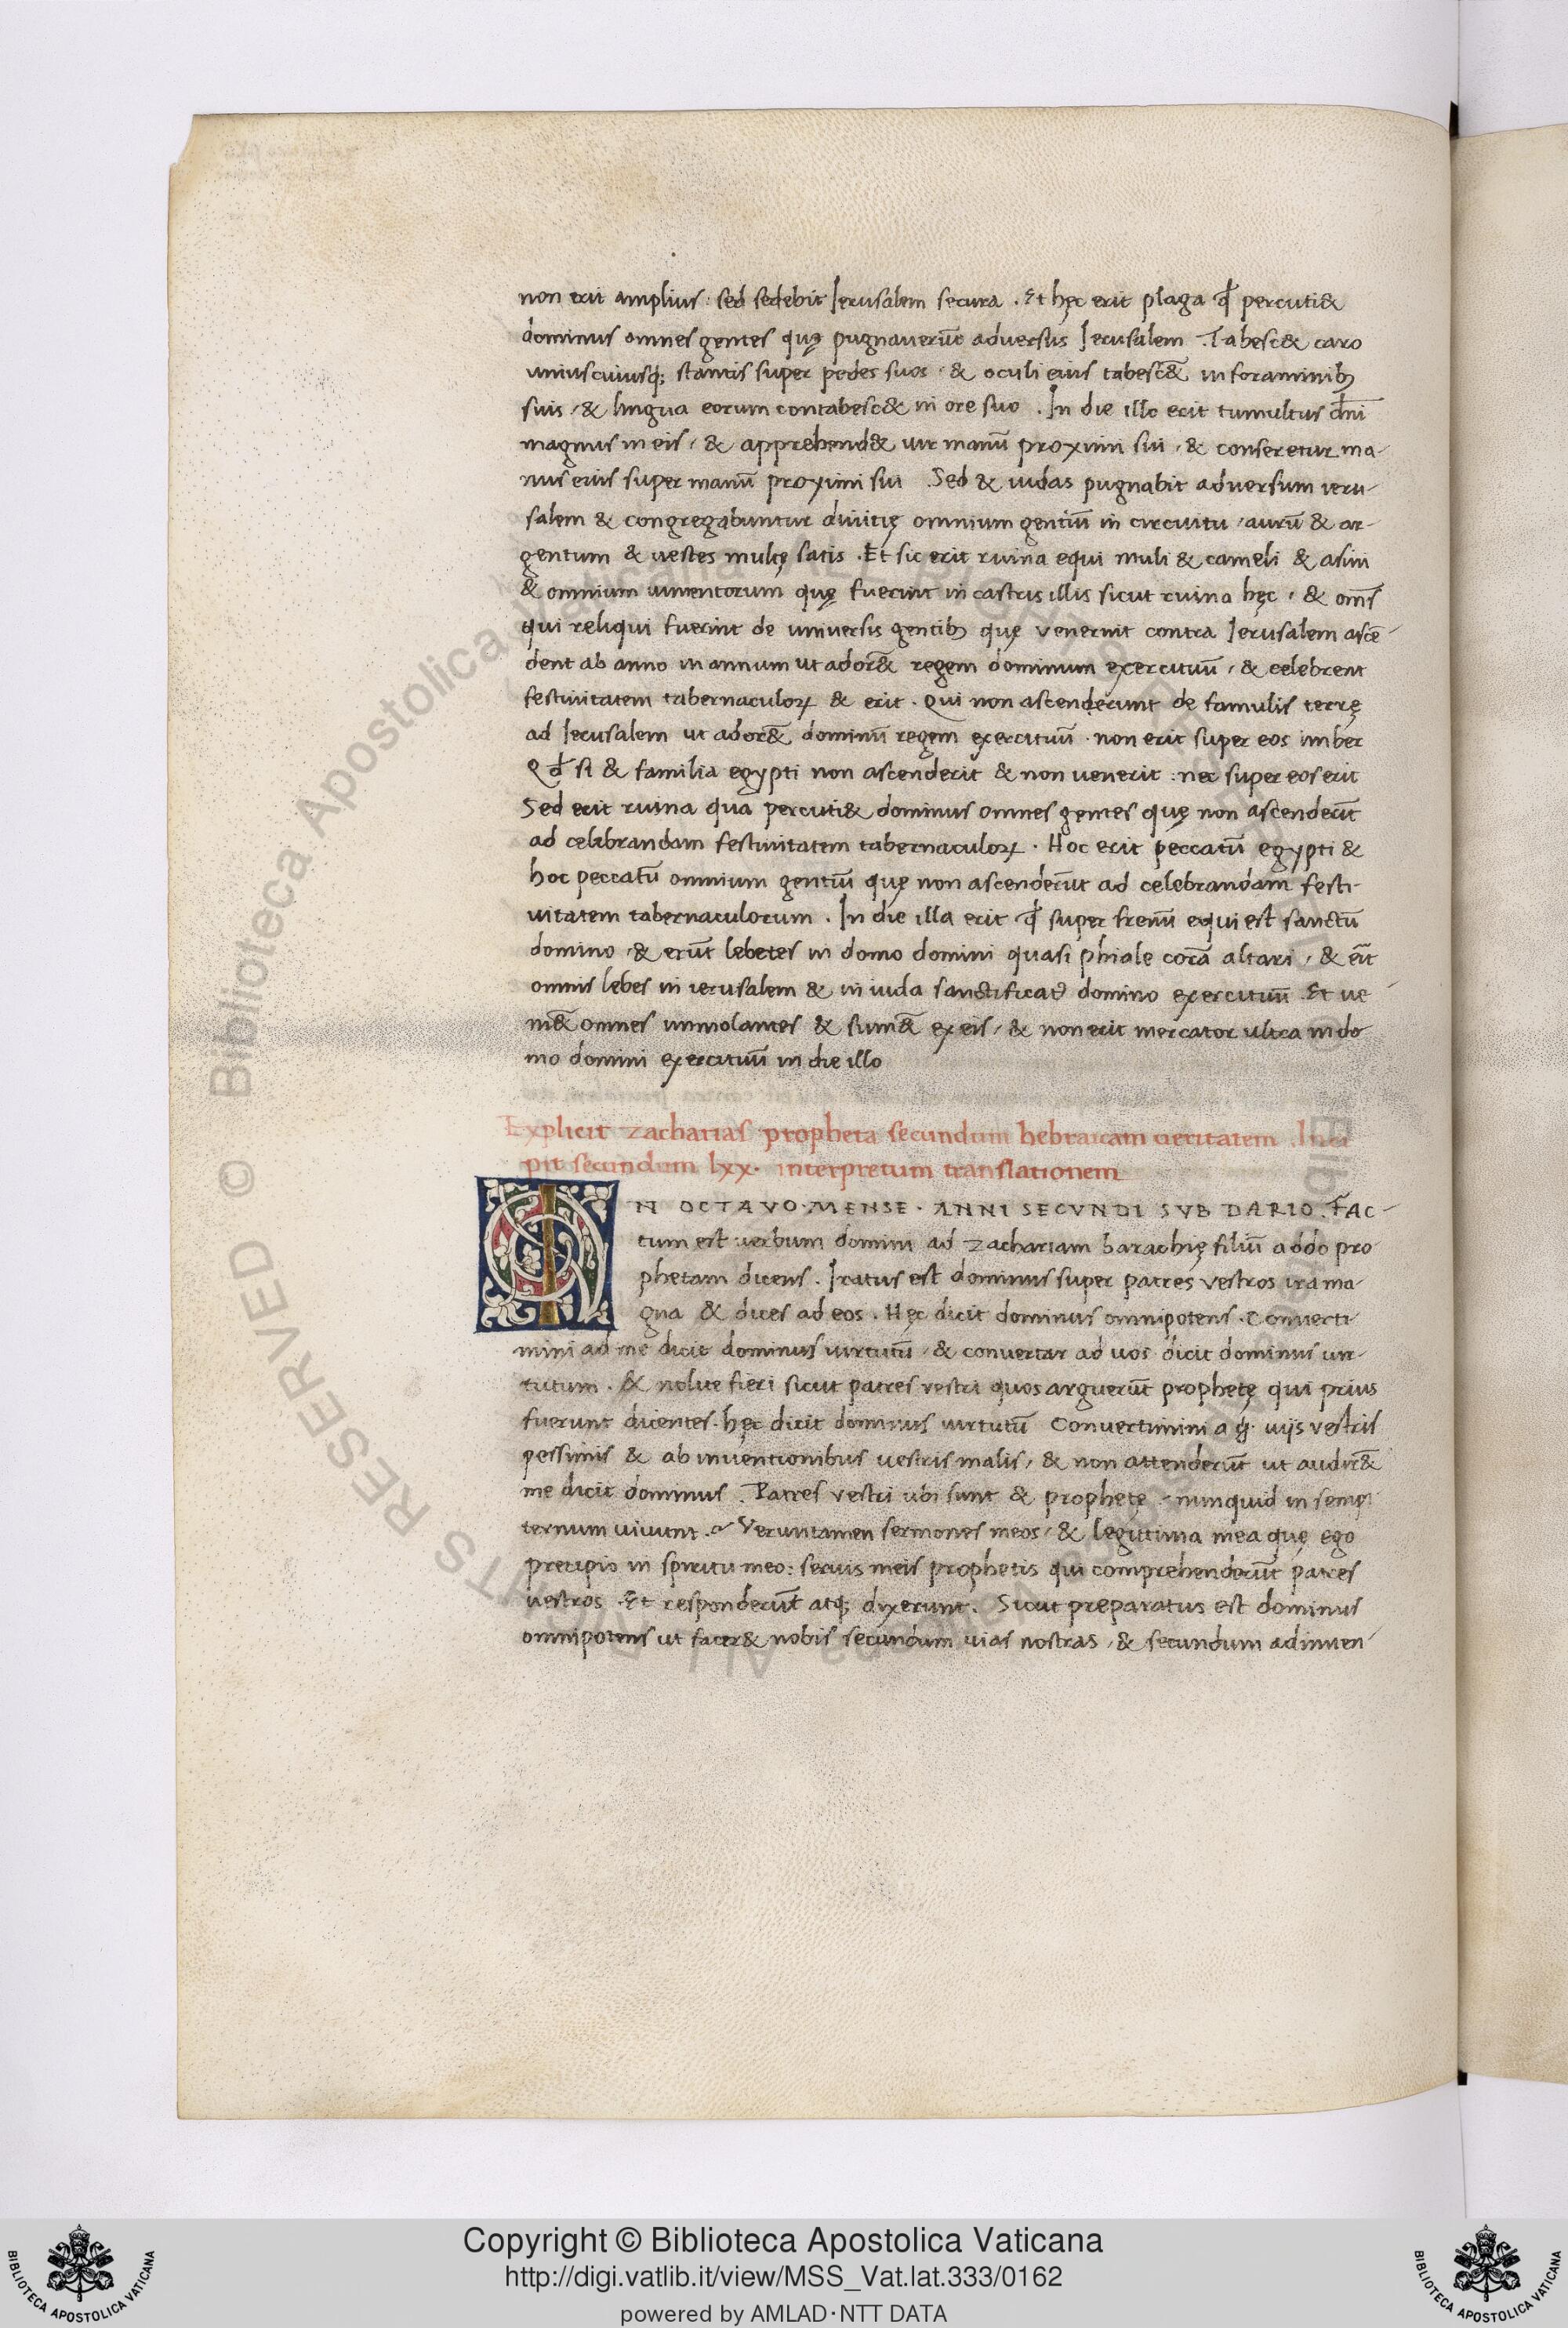 non erit amplius : sed sedebit Ierusalem secura . Et hęc erit plaga qđ percuti&
dominus omnes gentes quę pugnauerūt adversus Ierusalem . Tabesc& caro
uniuscuiusq; stantis super pedes suos · & oculi eius tabesc&̄ in foraminib;
suis / & lingua eorum contabesc& in ore suo . In die illo erit tumultus dn̄i
magnus in eis / & apprehend& uir manū proximi sui , & conseretur ma-
nus eius super manū proximi sui . Sed & iudas pugnabit adversum ieru-
salem & congregabuntur diuitię omnium gentiū in circuitu / aurū & ar-
gentum & uestes multę satis . Et sic erit ruina equi muli & cameli & asini
& omnium iumentorum quę fuerint in castris illis sicut ruina hęc , & om̄s
qui reliqui fuerint de universis gentib; quę venerint contra Ierusalem ascē-
dent ab anno in annum ut ador&̄ regem dominum exercituū , & celebrent
festiuitatem tabernaculoꝝ & erit . Qui non ascenderunt de familiis terrę
ad Ierusalem ut ador&̄ dominū regem exercituū · non erit super eos imber
Qđ si & familia egypti non ascenderit & non uenerit : nec super eos erit
Sed erit ruina qua percuti& dominus omnes gentes quę non ascenderūt
ad celebrandam festiuitatem tabernaculoꝝ . Hoc erit peccatū egypti &
hoc peccatū omnium gentiū quę non ascenderūt ad celebrandam festi-
uitatem tabernaculorum . In die illa erit qđ super frenū equi est sanctū
domino , & erūt lebetes in domo domini quasi phiale corā altari , & erit
omnis lebes in ierusalem & in iuda sanctificat domino exercituū . Et ue-
ni&̄ omnes immolantes & sum&̄ ex eis , & non erit mercator ultra in do-
mo domini exercituū in die illo
Explicit zacharias propheta secundum hebraicam ueritatem . Inci
pit secundum lxx. interpretum translationem
IN OCTAVO · MENSE · ANNI SECVNDI SVB DARIO . FAC-
tum est uerbum domini ad zachariam barachię filiū addo pro-
phetam dicens . Iratus est dominus super patres vestros ira ma-
gna & dices ad eos . Hęc dicit dominus omnipotens . Converti-
mini ad me dicit dominus uirtutū / & convertar ad uos dicit dominus uir-
tutum . & nolite fieri sicut patres vestri quos arguerūt prophetę qui prius
fuerunt dicentes . hęc dicit dominus uirtutū Convertimini a uijs vestris
pessimis & ab inuentionibus uestris malis , & non attenderūt ut audir&̄
me dicit dominus . Patres vestri ubi sunt & prophetę · nunquid in sempi
ternum uiuunt . Veruntamen sermones meos / & legitima mea quę ego
precipio in spiritu meo : seruis meis prophetis qui comprehenderūt patres
uestros . Et responderūt atq; dixerunt . Sicut preparatus est dominus
omnipotens ut facer& nobis secundum uias nostras , & secundum adinuen-
© Biblioteca Apostolica Vaticana ALL RIGHTS RESERVED
Copyright © Biblioteca Apostolica Vaticana
http://digi.vatlib.it/view/MSS_Vat.lat.333/0162
powered by AMLAD·NTT DATA
BIBLIOTECA APOSTOLICA VATICANA
BIBLIOTECA APOSTOLICA VATICANA